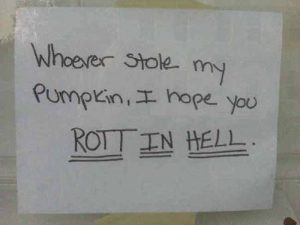 Whoever stole my
Pumpkin, I hope you
ROTT IN HELL.